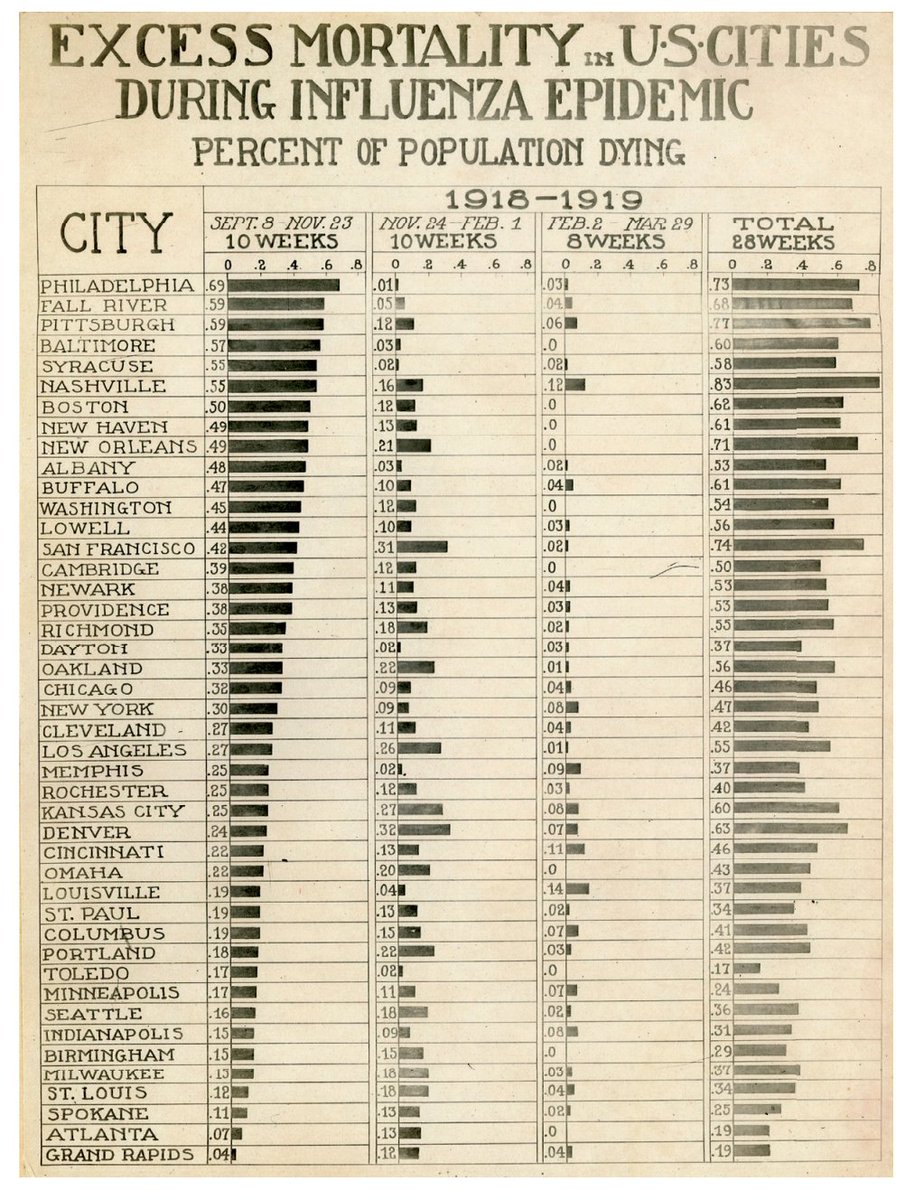 EXCESS MORTALITY IN U·S·CITIES
DURING INFLUENZA EPIDEMIC
PERCENT OF POPULATION DYING
CITY
1918–1919
SEPT. 8 – NOV. 23 NOV. 24 – FEB. 1 FEB. 2 – MAR 29 TOTAL
10 WEEKS 10 WEEKS 8 WEEKS 28 WEEKS
0 .2 .4 .6 .8 0 .2 .4 .6 .8 0 .2 .4 .6 .8 0 .2 .4 .6 .8
PHILADELPHIA .69 .01 .03 .73
FALL RIVER .59 .05 .04 .68
PITTSBURGH .59 .12 .06 .77
BALTIMORE .57 .03 .0 .60
SYRACUSE .55 .02 .02 .58
NASHVILLE .55 .16 .12 .83
BOSTON .50 .12 .0 .62
NEW HAVEN .49 .13 .0 .61
NEW ORLEANS .49 .21 .0 .71
ALBANY .48 .03 .02 .53
BUFFALO .47 .10 .04 .61
WASHINGTON .45 .12 .0 .54
LOWELL .44 .10 .03 .56
SAN FRANCISCO .42 .31 .02 .74
CAMBRIDGE .39 .12 .0 .50
NEWARK .38 .11 .04 .53
PROVIDENCE .38 .13 .03 .53
RICHMOND .35 .18 .02 .55
DAYTON .33 .02 .03 .37
OAKLAND .33 .22 .01 .56
CHICAGO .32 .09 .04 .46
NEW YORK .30 .09 .08 .47
CLEVELAND .27 .11 .04 .42
LOS ANGELES .27 .26 .01 .55
MEMPHIS .25 .02 .09 .37
ROCHESTER .25 .12 .03 .40
KANSAS CITY .25 .27 .08 .60
DENVER .24 .32 .07 .63
CINCINNATI .22 .13 .11 .46
OMAHA .22 .20 .0 .43
LOUISVILLE .19 .04 .14 .37
ST. PAUL .19 .13 .02 .34
COLUMBUS .19 .15 .07 .41
PORTLAND .18 .22 .03 .42
TOLEDO .17 .02 .0 .17
MINNEAPOLIS .17 .11 .07 .24
SEATTLE .16 .18 .02 .36
INDIANAPOLIS .15 .09 .08 .31
BIRMINGHAM .15 .15 .0 .29
MILWAUKEE .15 .18 .03 .37
ST. LOUIS .12 .18 .04 .34
SPOKANE .11 .13 .02 .25
ATLANTA .07 .13 .0 .19
GRAND RAPIDS .04 .12 .04 .19